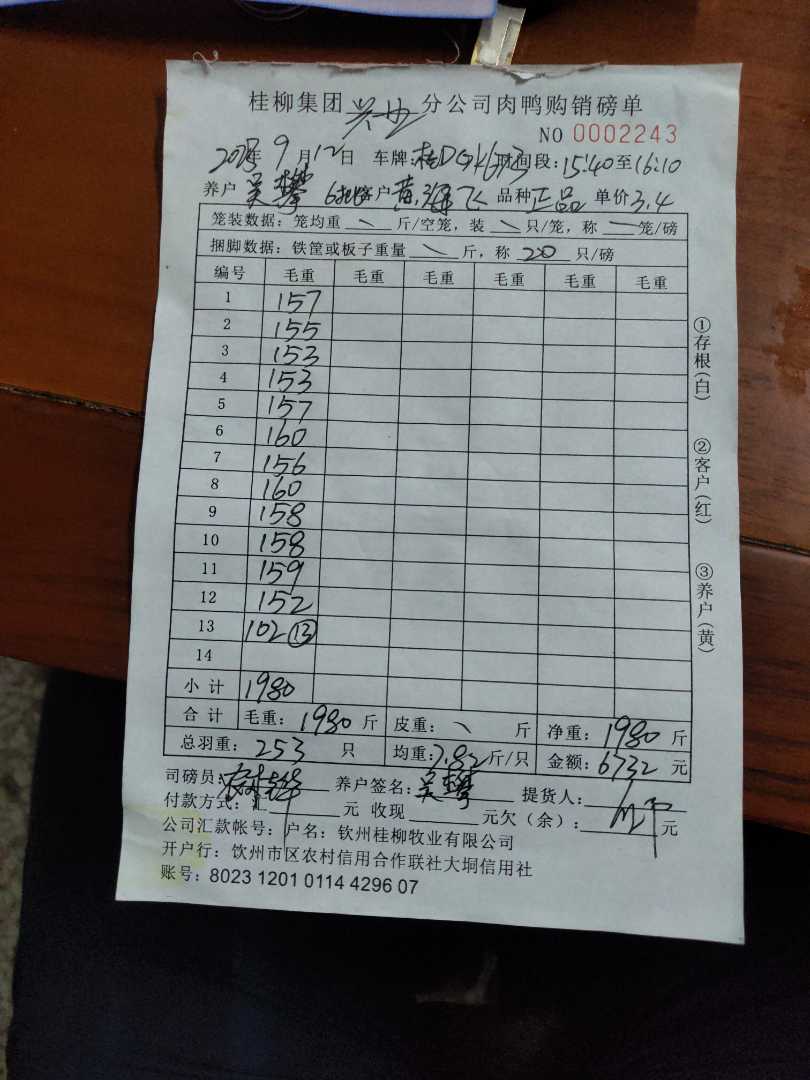 桂柳集团 分公司肉鸭购销磅单
NO 0002243
年 9 月 12 日 车牌: 时间段: 15:40 至 16:10
养户 吴攀 6批 客户 黄 飞 品种 正品 单价 3.4
笼装数据: 笼均重 \ 斤/空笼, 装 \ 只/笼, 称 \ 笼/磅
捆脚数据: 铁筐或板子重量 \ 斤, 称 20 只/磅
编号 毛重 毛重 毛重 毛重 毛重 毛重
1 157
2 155
3 153
4 153
5 157
6 160
7 156
8 160
9 158
10 158
11 159
12 152
13 102 ⑬
14
小计 1980
合计 毛重: 1980 斤 皮重: \ 斤 净重: 1980 斤
总羽重: 253 只 均重: 7.82 斤/只 金额: 6732 元
司磅员: 养户签名: 吴攀 提货人:
付款方式: 汇 元 收现 元欠(余): 元
公司汇款帐号: 户名: 钦州桂柳牧业有限公司
开户行: 饮州市区农村信用合作联社大垌信用社
账号: 8023 1201 0114 4296 07
①存根(白)
②客户(红)
③养户(黄)